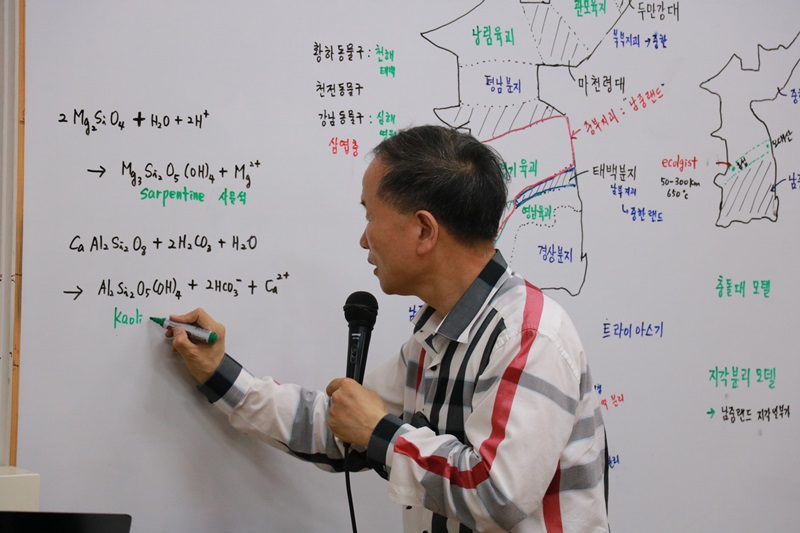 2 Mg₂SiO₄ + H₂O + 2H⁺
→ Mg₃Si₂O₅(OH)₄ + Mg²⁺
Sarpentine 사문석
CaAl₂Si₂O₈ + 2H₂CO₃ + H₂O
→ Al₂Si₂O₅(OH)₄ + 2HCO₃⁻ + Ca²⁺
Kaoli
황하동물구 : 천해
태백
천전동물구
강남동물구 : 심해
삼엽충
관모육괴
두만강대
낭림육괴
북부지괴 → 중한
평남분지
마천령대
중부지괴 : "남중랜드"
기육괴
태백분지
남부지괴
↳ 중한랜드
영남육괴
경상분지
ecolgist
50-300km
650℃
충돌대 모텔
트라이아스기
지각분리 모텔
→ 남중랜드 지각
분리